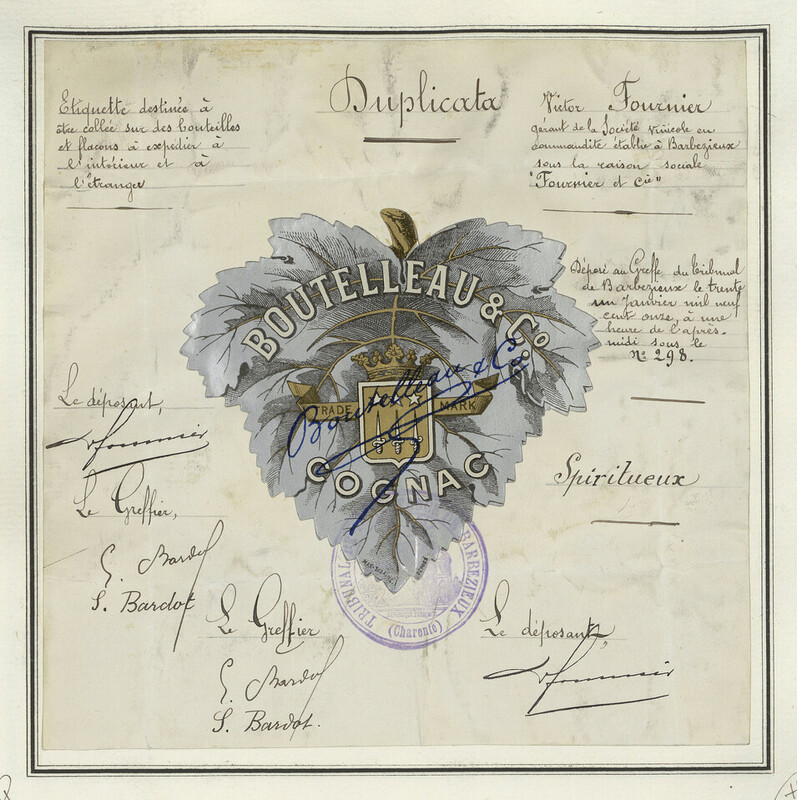 Duplicata
Etiquette destinée à
être collée sur des bouteilles
et flacons à expédier à
l'intérieur et à
l'étranger
Victor Fournier
gérant de la Société vinicole en
commandite établie à Barbezieux
sous la raison sociale
"Fournier et Cie"
Déposé au Greffe du Tribunal
de Barbezieux le trente
un Janvier mil neuf
cent onze, à une
heure de l'après-
midi sous le
N° 298.
BOUTELLEAU & Co
Boutelleau & Co
TRADE MARK
COGNAC
Le déposant,
Fournier
Spiritueux
Le Greffier,
S. Bardot
S. Bardot
TRIBUNAL
BARBEZIEUX
(Charente)
Le Greffier
S. Bardot
S. Bardot.
Le déposant,
Fournier